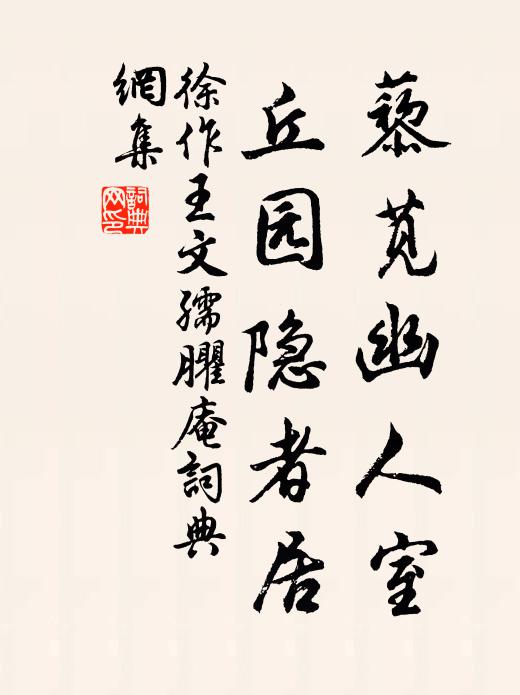 藜苋幽人室
丘园隐者居
徐作王文孺臞庵詞典
網集
詞典網印